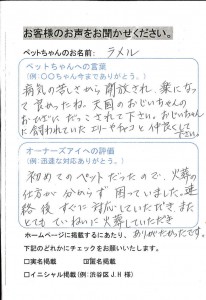 お客様のお声をお聞かせください。
ペットちゃんのお名前: ラメル
ペットちゃんへの言葉
(例:〇〇ちゃん今までありがとう。)
病気の苦しさから開放され、楽になっ
て良かったね。天国のおじいちゃんの
おひざにだっこされて下さい。おじいちゃん
に飼われていたエリーやチャコと仲良くして
下さい。
オーナーズアイへの評価
(例:迅速な対応ありがとう。)
初めてのペットだったので、火葬の
仕方が分からず困っていました。連
絡後すぐに対応していただき また
とてもていねいに火葬していただき
ありがたかったです。
ホームページに掲載するにあたり、
下記のどれかにチェックをお願いします。
□実名掲載 ☑匿名掲載
□イニシャル掲載(例:渋谷区J.H様)